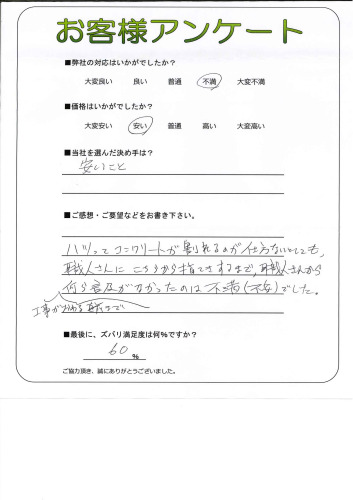 お客様アンケート
■弊社の対応はいかがでしたか?
大変良い 良い 普通 不満 大変不満
■価格はいかがでしたか?
大変安い 安い 普通 高い 大変高い
■当社を選んだ決め手は?
安いこと
■ご感想・ご要望などをお書き下さい。
ハツってコンクリートが割れるのが仕方ないとしても、
職人さんにこちらから指てきするまで、職人さんから
何ら言及がなかったのは不満(不安)でした。
工事が終わる直前まで
■最後に、ズバリ満足度は何%ですか?
60 %
ご協力頂き、誠にありがとうございました。